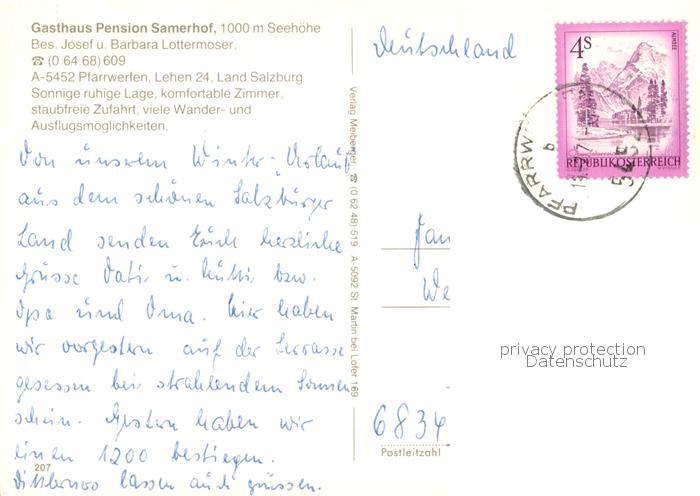 Gasthaus Pension Samerhof, 1000 m Seehöhe
Bes. Josef u. Barbara Lottermoser,
☎ (0 64 68) 609
A-5452 Pfarrwerfen, Lehen 24, Land Salzburg
Sonnige ruhige Lage, komfortable Zimmer,
staubfreie Zufahrt, viele Wander- und
Ausflugsmöglichkeiten.
Von unserem Winter-Urlaub
aus dem schönen Salzburger
Land senden Euch herzliche
Grüsse Vati u. Mutti bzw.
Opa und Oma. Hier haben
wir vorgestern auf der Terrasse
gesessen bei strahlendem Sonnen
schein. Gestern haben wir
einen 1200 bestiegen.
lassen auch grüssen.
207
Verlag Meiberger, ☎ (0 62 48) 519 A-5092 St. Martin bei Lofer 169
Deutschland
4S
ALMSEE
REPUBLIK ÖSTERREICH
PFARRW
b
5452
Fam
We
privacy protection
Datenschutz
6834
Postleitzahl